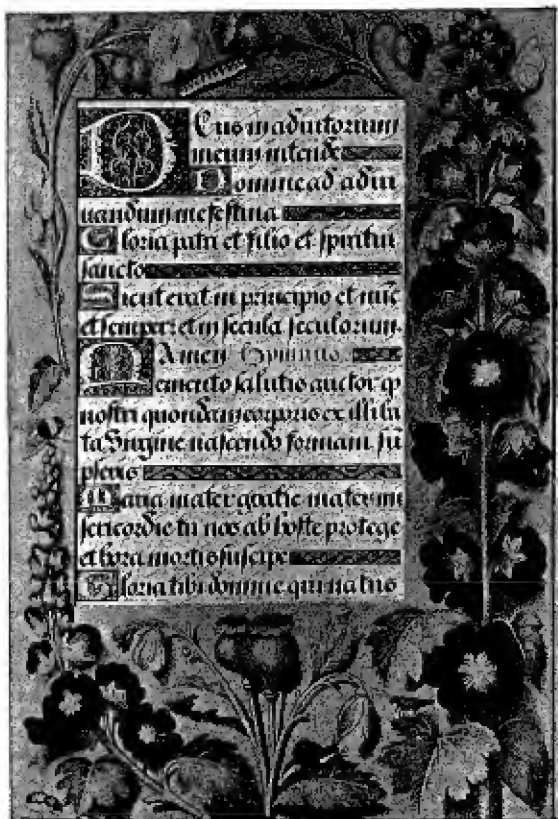 Deus in adiutorium
meum intende
Domine ad adiu
uandum me festina
Gloria patri et filio et spiritui
sancto
Sicut erat in principio et nūc
et semper et in secula seculorum.
Amen
Memento salutis auctor qp
nostri quondam corporis ex illiba
ta virgine nascendo formam sū
pseris
Maria mater gratie mater mi
sericordie tu nos ab hoste protege
et hora mortis suscipe
Gloria tibi domine qui natus